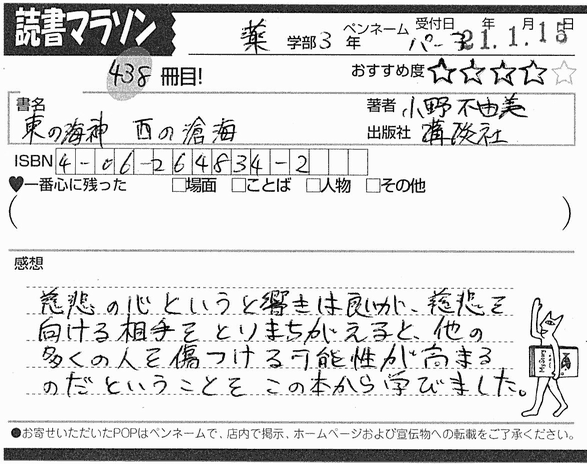 読書マラソン
薬 学部 3 年 ペンネーム パー子 受付日 21年 1月 15日
438 冊目!
おすすめ度 ★★★★☆
書名 東の海神 西の滄海
著者 小野不由美
出版社 講談社
ISBN 4-06-264834-2
♥一番心に残った □場面 □ことば □人物 □その他
( )
感想
慈悲の心というと響きは良いが、慈悲を
向ける相手をとりまちがえると、他の
多くの人を傷つける可能性が高まる
のだということをこの本から学びました。
●お寄せいただいたPOPはペンネームで、店内で掲示、ホームページおよび宣伝物への転載をご了承ください。